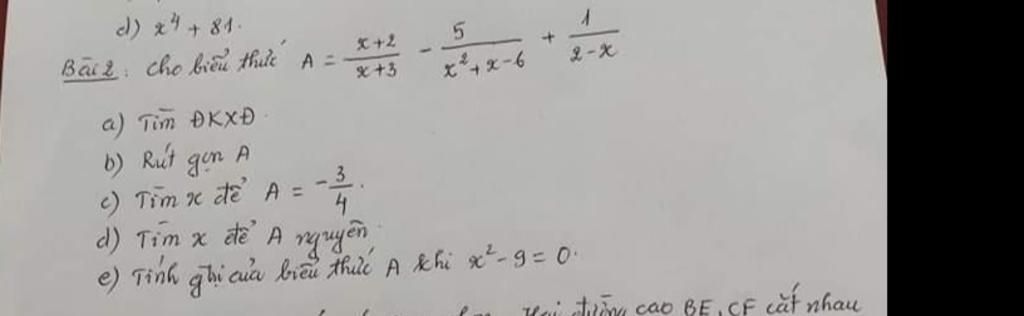 d) x⁴ + 81.
Bài 2: Cho biểu thức A = (x+2)/(x+3) - 5/(x²+x-6) + 1/(2-x)
a) Tìm ĐKXĐ.
b) Rút gọn A
c) Tìm x để A = -3/4.
d) Tìm x để A nguyên.
e) Tính ghị của biểu thức A khi x²-9=0.
đường cao BE, CF cắt nhau